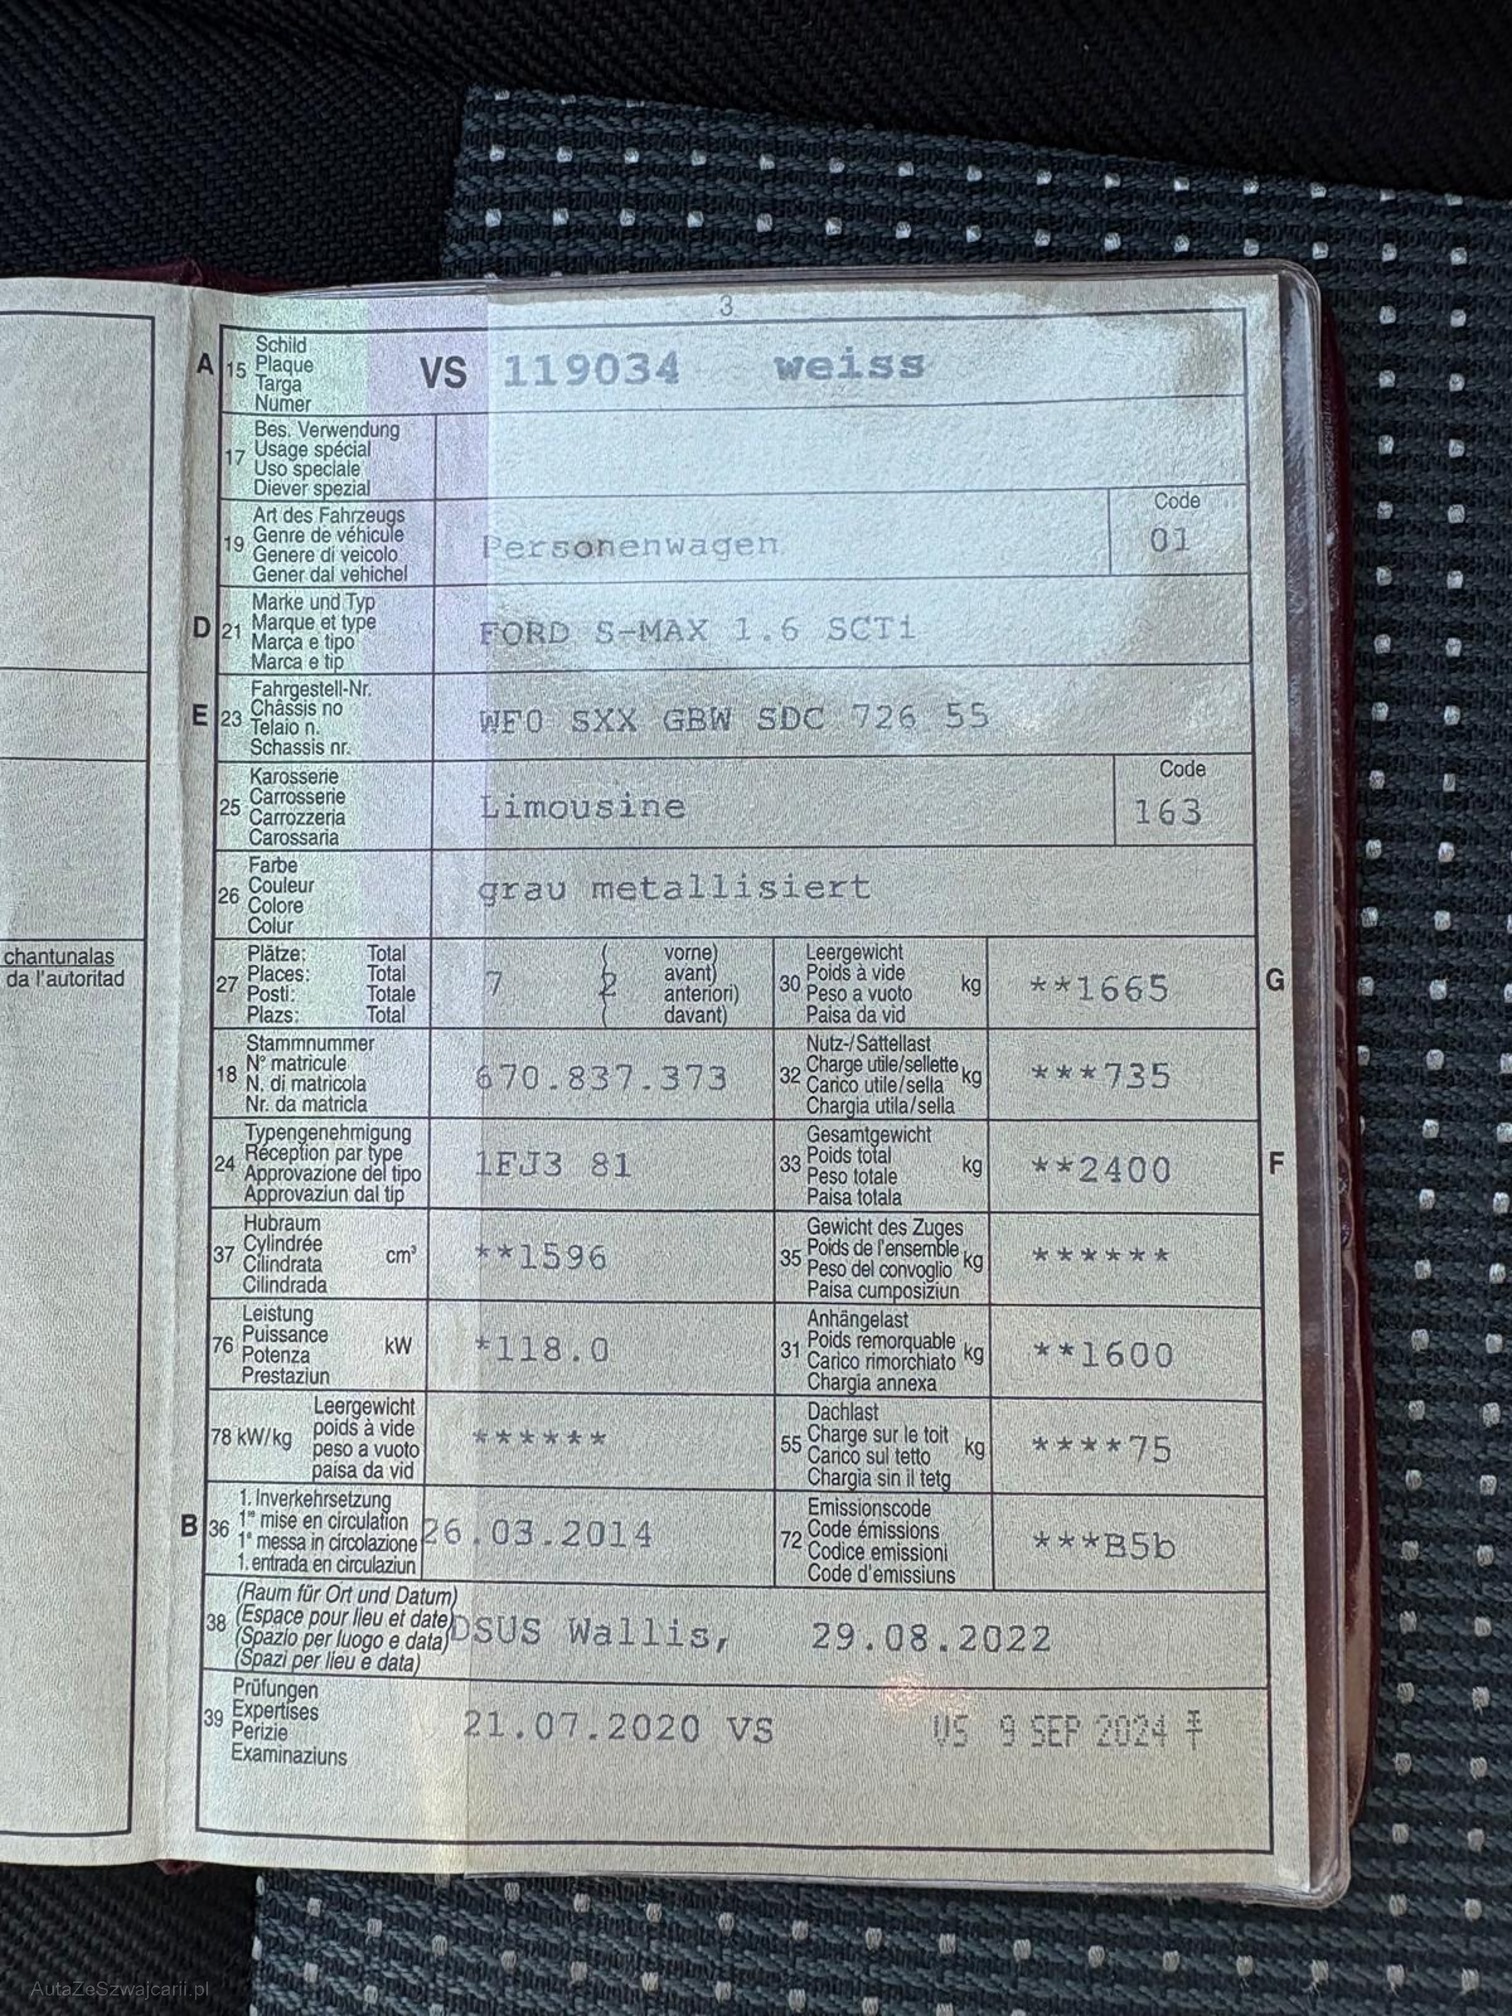 3
A 15 Schild
Plaque
Targa
Numer
VS 119034 weiss
17 Bes. Verwendung
Usage spécial
Uso speciale
Diever spezial
19 Art des Fahrzeugs
Genre de véhicule
Genere di veicolo
Gener dal vehichel
Personenwagen
Code
01
D 21 Marke und Typ
Marque et type
Marca e tipo
Marca e tip
FORD S-MAX 1.6 SCTi
E 23 Fahrgestell-Nr.
Châssis no
Telaio n.
Schassis nr.
WF0 SXX GBW SDC 726 55
25 Karosserie
Carrosserie
Carrozzeria
Carossaria
Limousine
Code
163
26 Farbe
Couleur
Colore
Colur
grau metallisiert
chantunalas
da l'autoritad
27 Plätze: Total
Places: Total
Posti: Totale
Plazs: Total
7 ( 2 vorne)
avant)
anteriori)
davant)
30 Leergewicht
Poids à vide
Peso a vuoto
Paisa da vid
kg **1665 G
18 Stammnummer
N° matricule
N. di matricola
Nr. da matricla
670.837.373
32 Nutz-/Sattellast
Charge utile/sellette
Carico utile/sella
Chargia utila/sella
kg ***735
24 Typengenehmigung
Réception par type
Approvazione del tipo
Approvaziun dal tip
1FJ3 81
33 Gesamtgewicht
Poids total
Peso totale
Paisa totala
kg **2400 F
37 Hubraum
Cylindrée
Cilindrata
Cilindrada
cm³ **1596
35 Gewicht des Zuges
Poids de l'ensemble
Peso del convoglio
Paisa cumposiziun
kg ******
76 Leistung
Puissance
Potenza
Prestaziun
kW *118.0
31 Anhängelast
Poids remorquable
Carico rimorchiato
Chargia annexa
kg **1600
78 kW/kg Leergewicht
poids à vide
peso a vuoto
paisa da vid
******
55 Dachlast
Charge sur le toit
Carico sul tetto
Chargia sin il tetg
kg ****75
B 36 1. Inverkehrsetzung
1re mise en circulation
1a messa in circolazione
1. entrada en circulaziun
26.03.2014
72 Emissionscode
Code émissions
Codice emissioni
Code d'emissiuns
***B5b
38 (Raum für Ort und Datum)
(Espace pour lieu et date)
(Spazio per luogo e data)
(Spazi per lieu e data)
DSUS Wallis, 29.08.2022
39 Prüfungen
Expertises
Perizie
Examinaziuns
21.07.2020 VS VS 9 SEP 2024
AutaZeSzwajcarii.pl